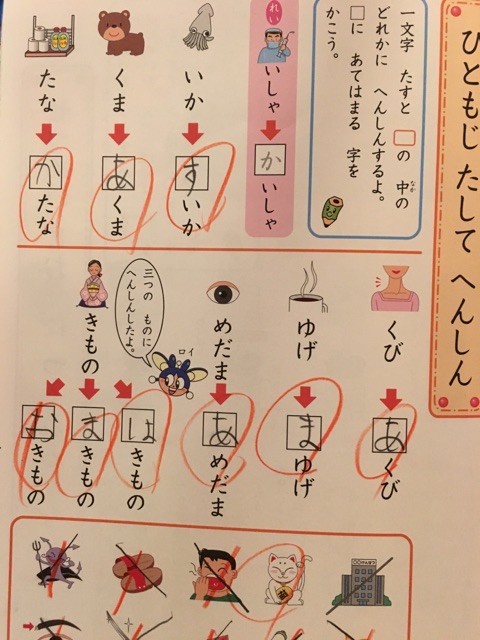 ひともじ たして へんしん
一文字 たすと □の 中(なか)の
どれかに へんしんするよ。
□に あてはまる 字を
かこう。
れい
いしゃ
かいしゃ
いか
すいか
くま
あくま
たな
かたな
くび
あくび
ゆげ
まゆげ
めだま
あめだま
ロイ
三つの ものに
へんしんしたよ。
きもの
はきもの
まきもの
おきもの